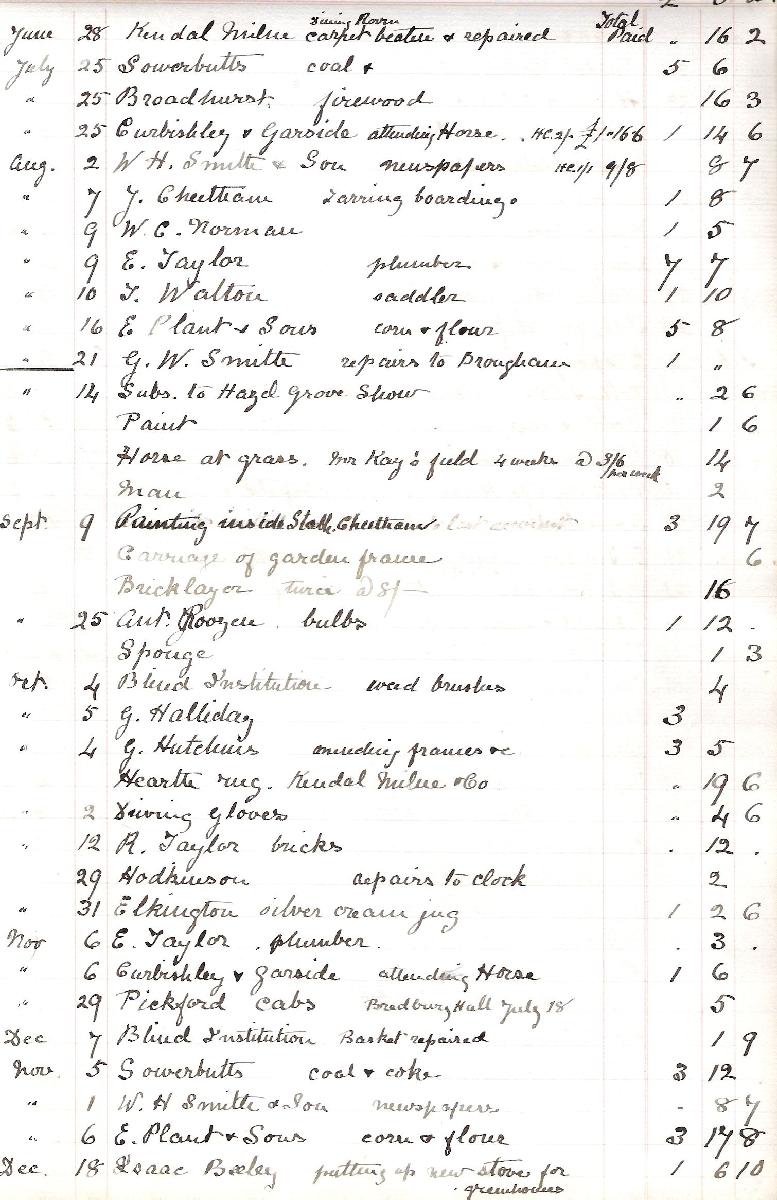 Dining Room Total
June 28 Kendal Milne carpet beaten & repaired Paid " 16 2
July 25 Sowerbutts coal & 5 6
" 25 Broadhurst. firewood 16 3
" 25 Curbishley & Garside attending Horse. 1 14 6
Aug. 2 W. H. Smith & Son newspapers 9/8 8 7
" 7 J. Cheetham Tarring boarding. 1 8
" 9 W. C. Norman 1 5
" 9 E. Taylor plumber 7 7
" 10 T. Walton saddler 1 10
" 16 E Plant & Sons corn & flour 5 8
" 21 G. W. Smith repairs to Brougham 1 "
" 14 Subs. to Hazel Grove Show " 2 6
Paint 1 6
Horse at grass. Mr Kay's field 4 weeks @ 3/6 14
per week
Man 2
Sept. 9 Painting inside Cheetham last account 3 19 7
Carriage of garden frame 6
Bricklayer twice @ 8/- 16
" 25 Ant. Roozen. bulbs 1 12 .
Sponge 1 3
Oct. 4 Blind Institution brushes 4
" 5 G. Halliday 3
" 4 G. Hutchins mending frames &c 3 5
Hearth rug. Kendal Milne & Co " 19 6
" 2 Driving gloves " 4 6
" 12 R. Taylor bricks . 12 .
29 Hodkinson repairs to clock 2
" 31 Elkington silver cream jug 1 2 6
Nov 6 E. Taylor . plumber. . 3 .
" 6 Curbishley & Garside attending Horse 1 6
" 29 Pickford cabs Bredbury Hall July 18 5
Dec 7 Blind Institution Basket repaired 1 9
Nov. 5 Sowerbutts coal & coke 3 12
" 1 W. H Smith & Son newspapers - 8 7
" 6 E. Plant & Sons corn & flour 3 17 8
Dec. 18 Isaac Beeley putting up new stove for 1 6 10
greenhouses